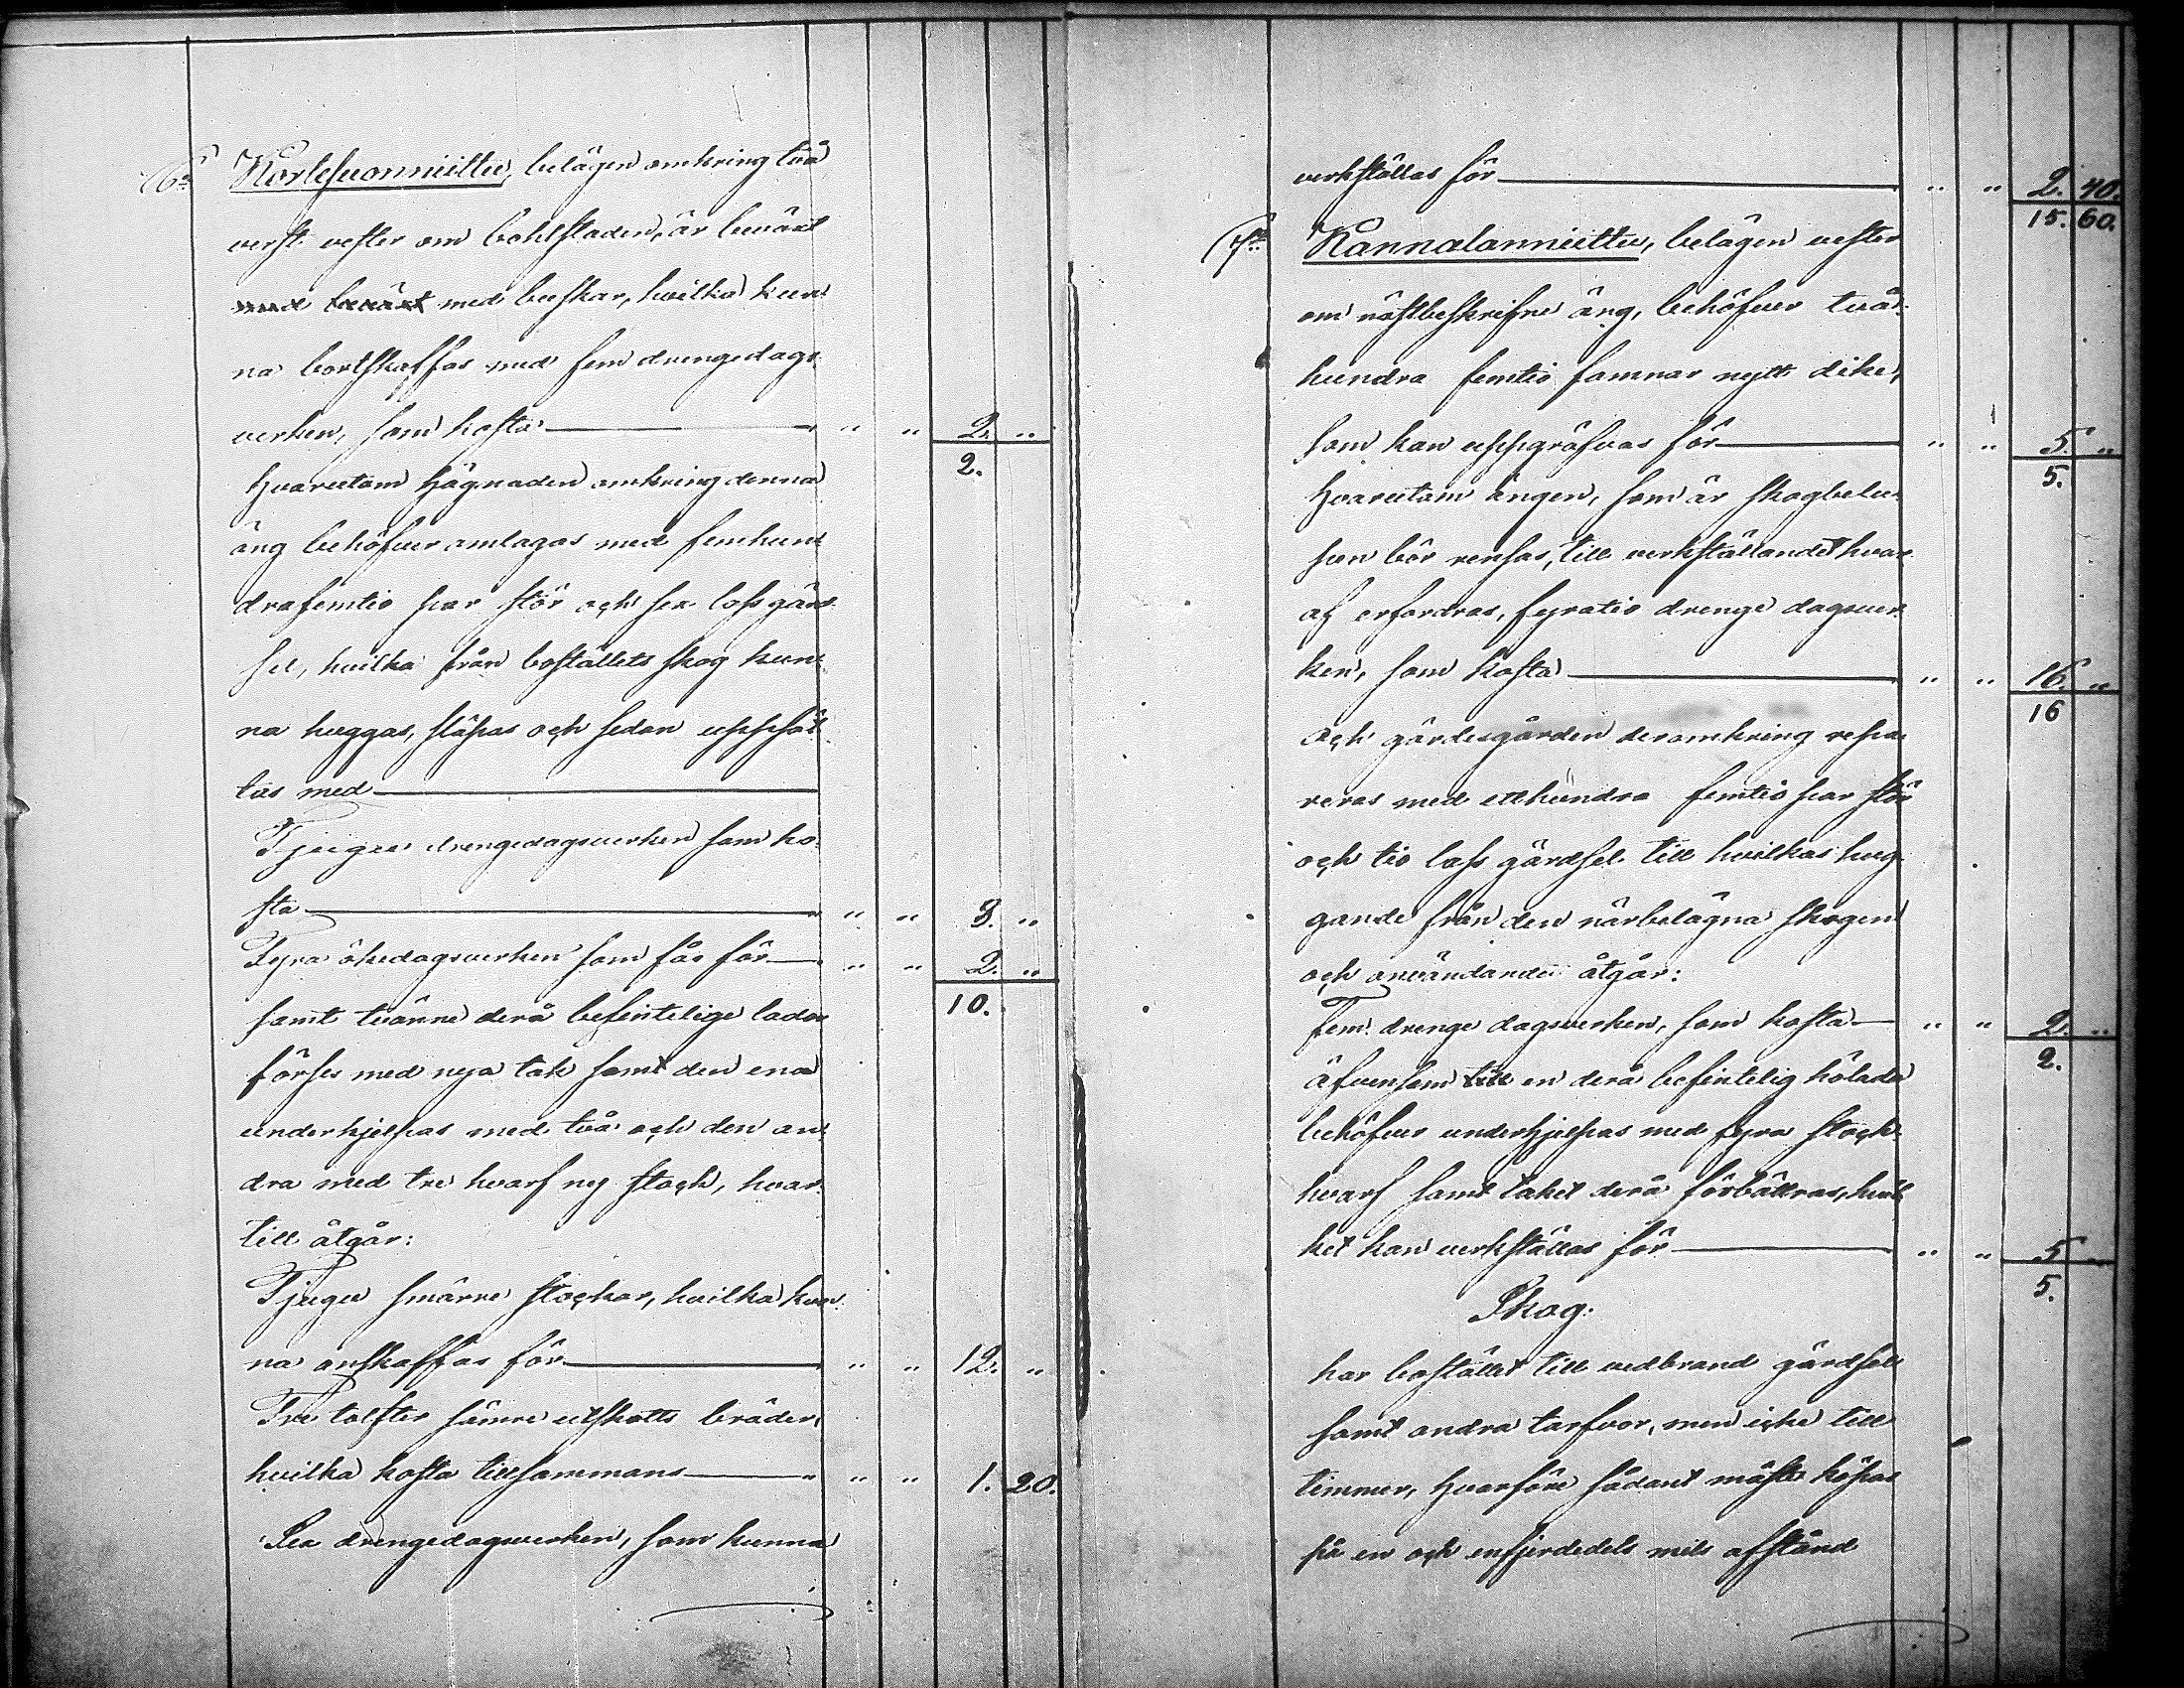 6:o Kortesuonniittu, belägen omkring två
verst vester om bohlstaden, är beväxt
med beväxt med buskar, hvilka kun-
na bortskaffas med fem drengedags-
verken, som kosta " " 2. "
2.
Hvarutom hägnaden omkring denna
äng behöfver omlagas med femhun-
drafemtio par stör och sex lass gärd-
sel, hvilka från boställets skog kun-
na huggas, släpas och sedan uppsät-
tas med
Tjugu drengedagsverken som ko-
sta " " 8. "
Fyra ökedagsverken som fås för " " 2. "
10.
samt tvänne derå befintelige lador
förses med nya tak samt den ena
underhjelpas med två och den an-
dra med tre hvarf ny stock, hvar-
till åtgår:
Tjugu smärre stockar, hvilka kun-
na anskaffas för " " 12. "
Tre tolfter sämre utskotts bräder,
hvilka kosta tillsammans " " 1. 20.
Sex drengedagsverken, som kunna
verkställas för " " 2. 40.
15. 60.
7:o Kannalanniittu, belägen vester
om nästbeskrifne äng, behöfver två-
hundra femtio famnar nytt dike,
som kan uppgräfvas för " " 5. "
5.
Hvarutom ängen, som är skogbelu-
pen bör rensas, till verkställandet hvar-
af erfordras, fyratio drenge dagsver-
ken, som kosta " " 16. "
16
och gärdesgården deromkring repa-
reras med etthundra femtio par stör
och tio lass gärdsel till hvilkas hug-
gande från den närbelägna skogen
och användande åtgår:
Fem drenge dagsverken, som kosta " " 2. "
2.
äfvensom till en derå befintelig hölada
behöfver underhjelpas med fyra stock-
hvarf samt taket derå förbättras, hvil-
ket kan verkställas för " " 5 "
5.
Skog:
har bostället till vedbrand gärdsel
samt andra tarfvor, men icke till
timmer, hvarföre sådant måste köpas
på en och enfjerdedels mils afstånd